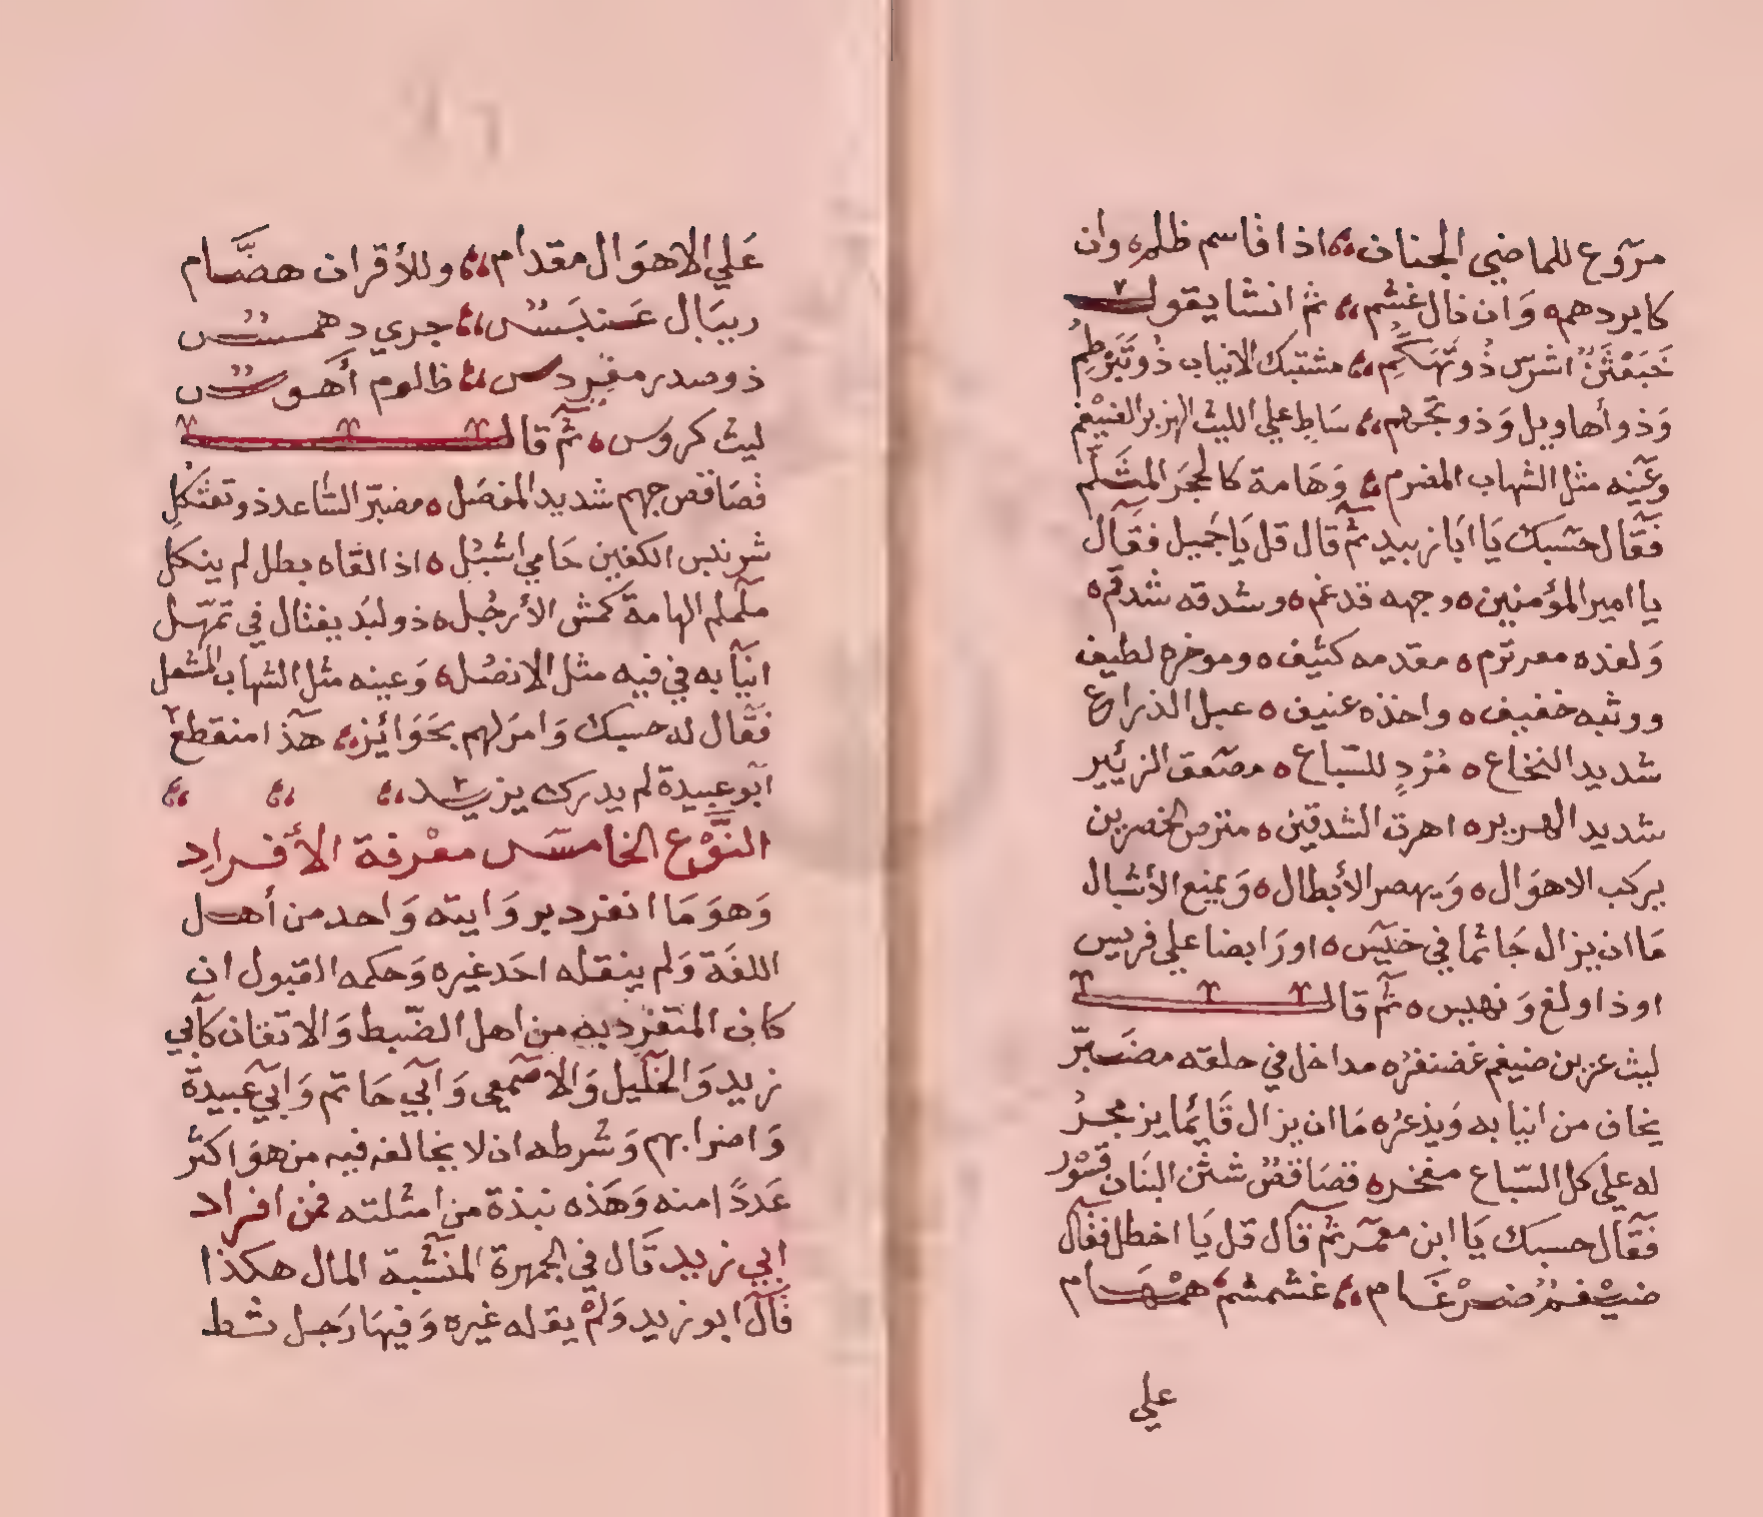 مروع للماضي الجنان اذا قاسم ظلم وان
كابردهم وان خال غشم ثم انشا يقول
خبعثن اشرس ذو تهكم مشتبك الانياب ذو تبرطم
وذو أهاويل وذو تجهم ساط علي الليث الهزبر الضيغم
وعينه مثل الشهاب المضرم وهامة كالحجر المثلم
فقال حسبك يا ابا زبيد ثم قال قل يا جميل فقال
يا امير المؤمنين وجهه فدغم وشدقه شدقم
ولغده معرنزم مقدمه كثيف وموخره لطيف
ووثبه خفيف واخذه عنيف عبل الذراع
شديد النخاع مرد للسباع مصعق الزئير
شديد الهرير اهرت الشدقين مترص الحضرين
يركب الاهوال ويهصر الأبطال ويمنع الأشبال
ما ان يزال جاثما في خيس او رابضا علي فريس
او ذا ولغ ونهيس ثم قال
ليث عرين ضيغم غضنفر مداخل في حلقه مضبر
يخاف من انيابه ويذعر ما ان يزال قايما يزمجر
له علي كل السباع مفخر قصاقص شثن البنان قسور
فقال حسبك يا ابن معمر ثم قال قل يا اخطل فقال
ضيغم ضرغام غشمشم همهام
علي
علي الاهوال مقدام وللأقران هضام
ريبال عنبس جري دهمس
ذو صدر مفردس ظلوم أهوس
ليث كروس ثم قال
قصاقص جهم شديد المفصل مضبر الساعد ذو تعثكل
شرنبس الكفين حامي اشبل اذا لقاه بطل لم ينكل
ململم الهامة كمش الأرجل ذو لبد يغتال في تمهل
انيابه في فيه مثل الانصل وعينه مثل الشهاب المشعل
فقال له حسبك وامر لهم بجوائز هذا منقطع
ابو عبيدة لم يدرك يزيد
النوع الخامس معرفة الأفراد
وهو ما انفرد بروايته واحد من أهل
اللغة ولم ينقله احد غيره وحكمه القبول ان
كان المتفرد به من اهل الضبط والاتقان كأبي
زيد والخليل والاصمعي وابي حاتم وابي عبيدة
واضرابهم وشرطه ان لا يخالفه فيه من هو اكثر
عددا منه وهذه نبذة من امثلته فمن افراد
ابي زيد قال في الجمهرة المنشبة المال هكذا
قال ابو زيد ولم يقله غيره وفيها رجل شط